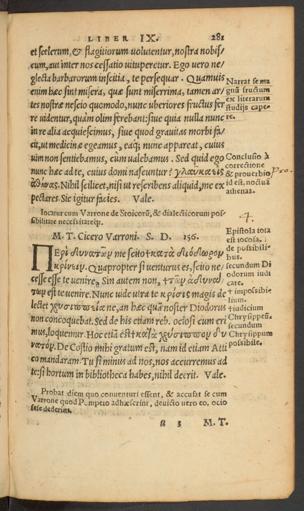 LIBER IX. 281
et scelerum, & flagitiorum uoluentur, nostra nobis-
cum, aut inter nos cessatio uituperetur. Ego uero ne-
glecta barbarorum inscitia, te persequar. Quamuis
enim hæc sint misera, quæ sunt miserrima, tamen ar-
tes nostræ nescio quomodo, nunc uberiores fructus fer
re uidentur, quàm olim ferebant: siue quia nulla nunc
in re alia acquiescimus, siue quod grauitas morbi fa-
cit, ut medicinæ egeamus, eaq; nunc appareat, cuius
uim non sentiebamus, cum ualebamus. Sed quid ego
nunc hæc ad te, cuius domi nascuntur? γλαῦκ᾽ εἰς
ἀθήνας. Nihil scilicet, nisi ut rescriberes aliquid, me ex
pectares. Sic igitur facies. Vale.
Narrat se ma
gnũ fructum
ex literarum
studijs cape-
re.
Conclusio à
correctione
& prouerbio
id est, noctua
athenas.
Iocatur cum Varrone de Stoicorũ, & dialecticorum pos-
sibilitate necessitateq́;.
M. T. Cicero Varroni. S. D. 156.
ΠΕρὶ δυνατῶν me scito κατὰ Διόδωρον
κρίνειν. Quapropter si uenturus es, scito ne-
cesse esse te uenire, Sin autem non, τῶν ἀδυνά-
των est te uenire. Nunc uide utra te κρίσις magis de-
lectet χρυσιππεία ne, an hæc quã noster Diodorus
non concoquebat. Sed de his etiam reb. ociosi cum eri
mus, loquemur. Hoc etiã est κατὰ χρύσιππον δυ-
νατόν. De Costio mihi gratum est, nam id etiam Atti
co mandaram. Tu si minus ad nos, nos accurremus ad
te: si hortum in bibliotheca habes, nihil deerit. Vale.
Epistola tota
est iocosa.
de possibili-
bus.
secundum Di
odorum iudi
care.
impossibi-
lium.
iudicium
Chrysippeũ.
secundum
Chrysippum
possibile.
Probat diem quo conuenturi essent, & accusat se cum
Varrone quod Pompeio adhæserint, deuicto utro eo, ocio
se dederint.
s 3 M. T.